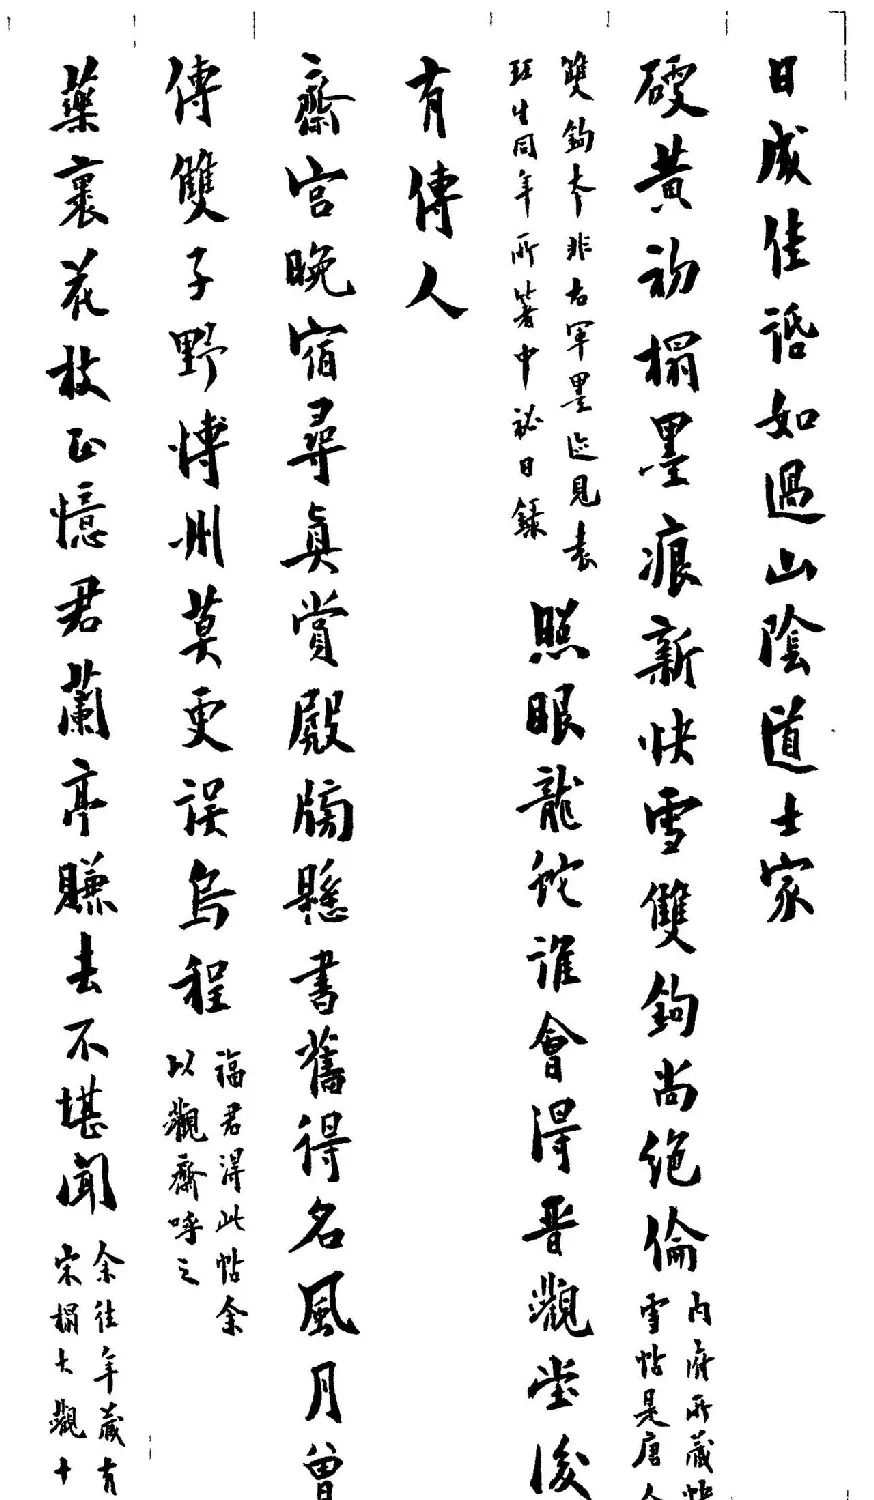 日成佳話如過山陰道士家
硬黃初搨墨痕新快雪雙鉤尚絕倫
內府所藏快
雪帖是唐人
雙鉤本非右軍墨迹見袁
珏生同年所箸中祕日錄
照眼龍蛇誰會得晉觀堂後
有傳人
齋宮晚宿尋真賞殿牓懸書舊得名風月曾
傳雙子野愽州莫更誤烏程
福君得此帖余
以觀齋呼之
藥裹花枝正憶君蘭亭賺去不堪聞
余往年藏有
宋搨大觀十